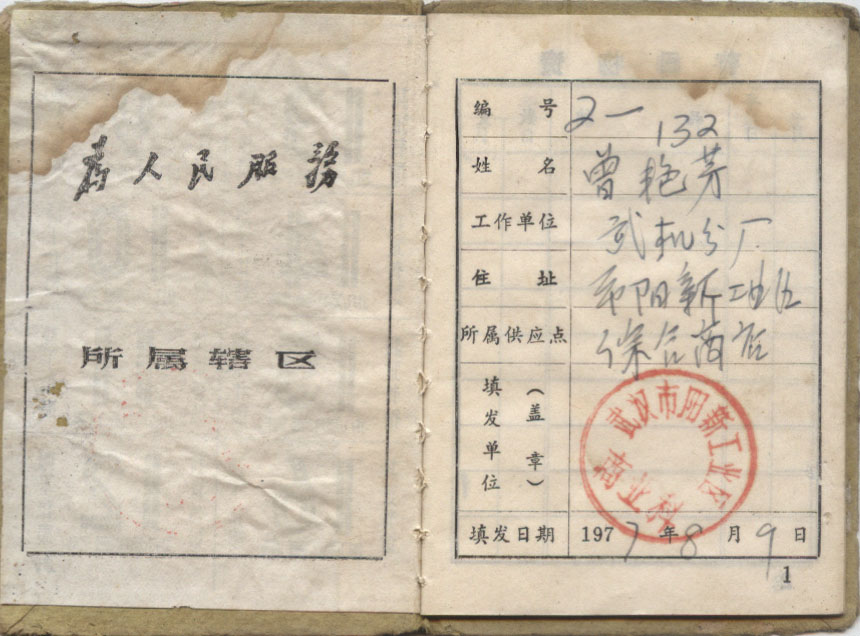 为人民服務
所属辖区
编号 2-132
姓名 曾艳芳
工作单位 武机分厂
住址 市阳新工业区
所属供应点 综合商店
填发单位（盖章）
武汉市阳新工业区
商业科
填发日期 1977年8月9日
1